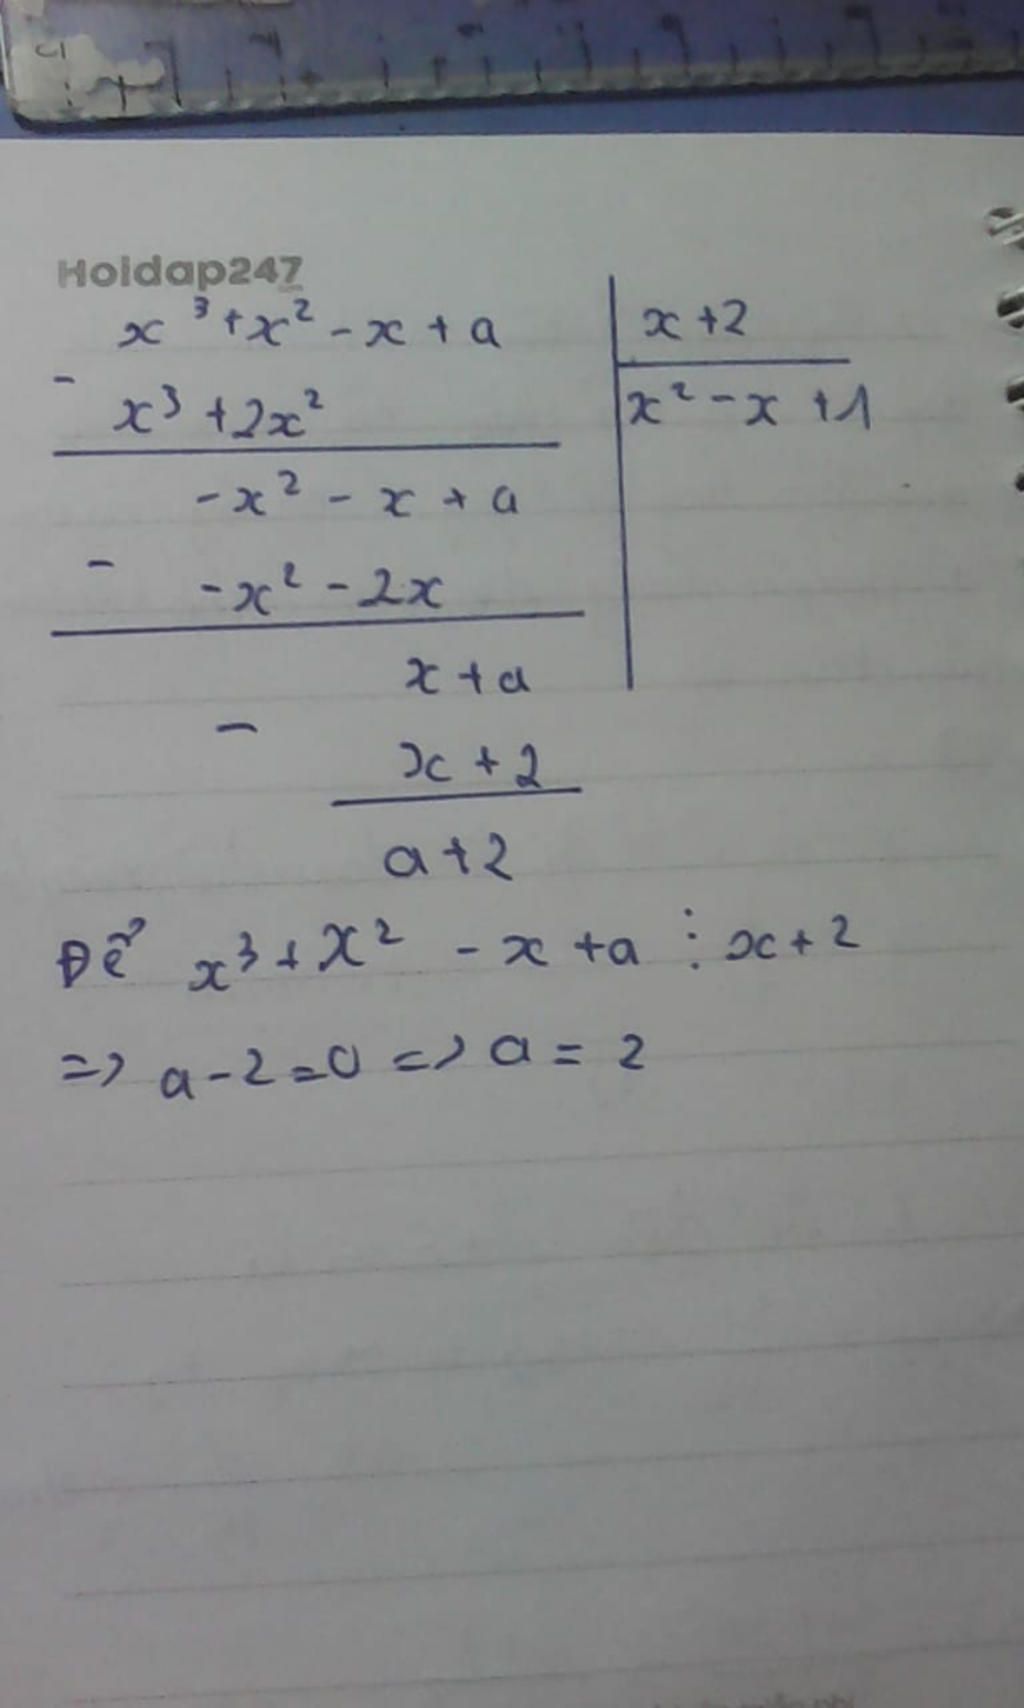 Hoidap247
x³ + x² - x + a | x + 2
-
x³ + 2x² | x² - x + 1
-x² - x + a
-
-x² - 2x
x + a
-
x + 2
a + 2
Để x³ + x² - x + a ⋮ x + 2
=> a - 2 = 0 => a = 2